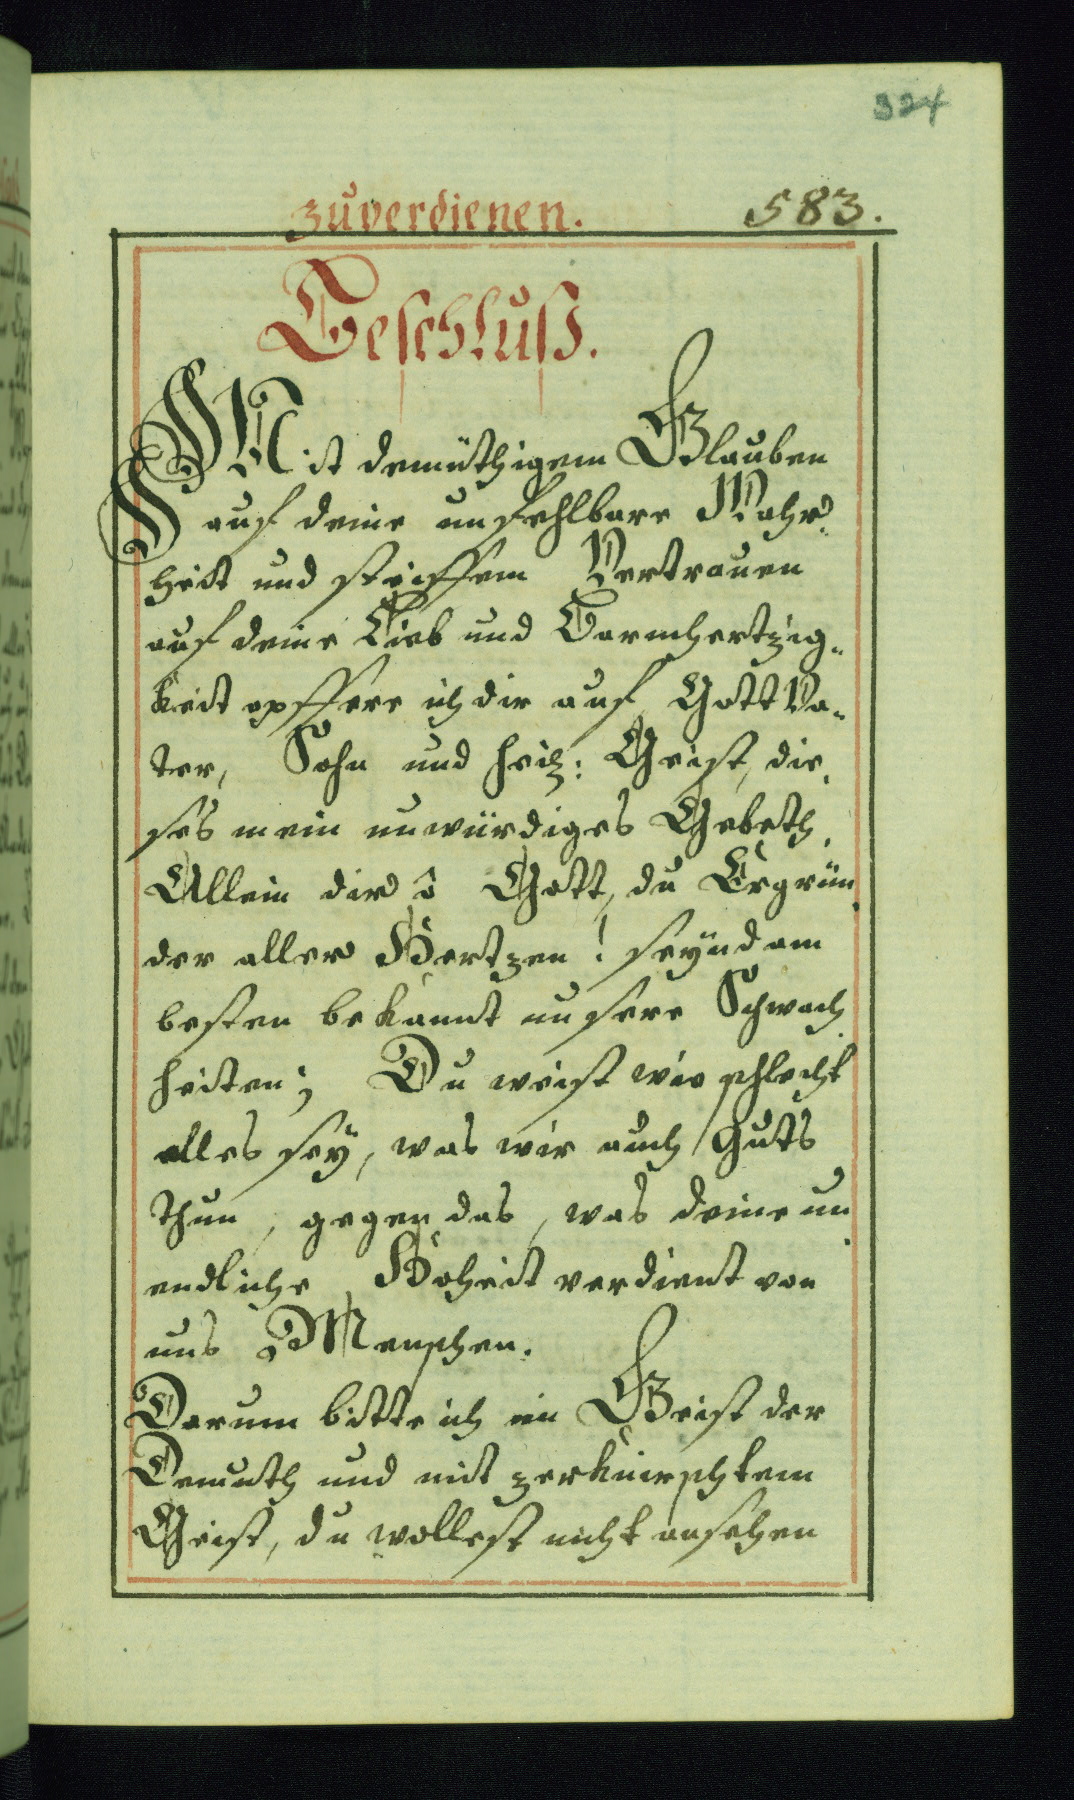 324
zuverdienen. 583.
Beschluß.
Mit demüthigem Glauben
auf deine unfehlbare Wahr-
heit und steiffem Vertrauen
auf deine Lieb und Barmhertzig-
keit opffere ich dir auf Gott Va-
ter, Sohn und heilg: Geist, die-
ses mein unwürdiges Gebeth.
Allein dir ô Gott, du Ergrün-
der aller Hertzen! seynd am
besten bekannt unsere Schwach-
heiten; Du weist wie schlecht
alles seÿ, was wir auch Guts
thun, gegen das, was deine un-
endliche Hoheit verdient von
uns Menschen.
Darum bitte ich im Geist der
Demuth und mit zerknirschtem
Geist, du wollest nicht ansehen